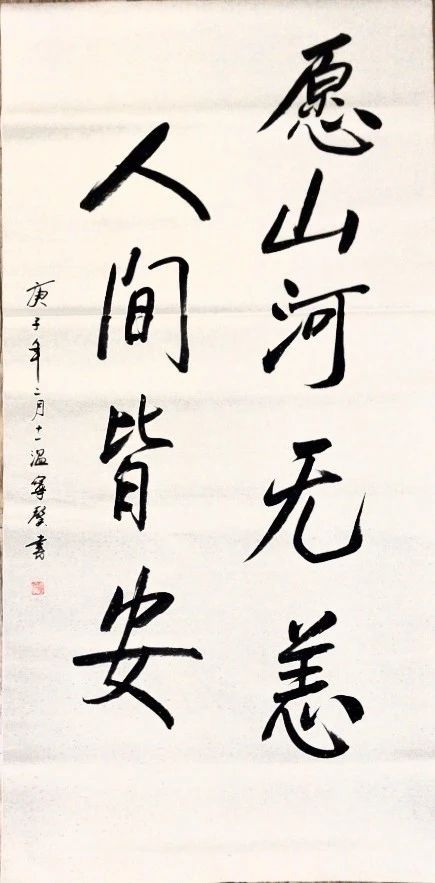 愿山河无恙
人间皆安
庚子年二月十一温寧馨書